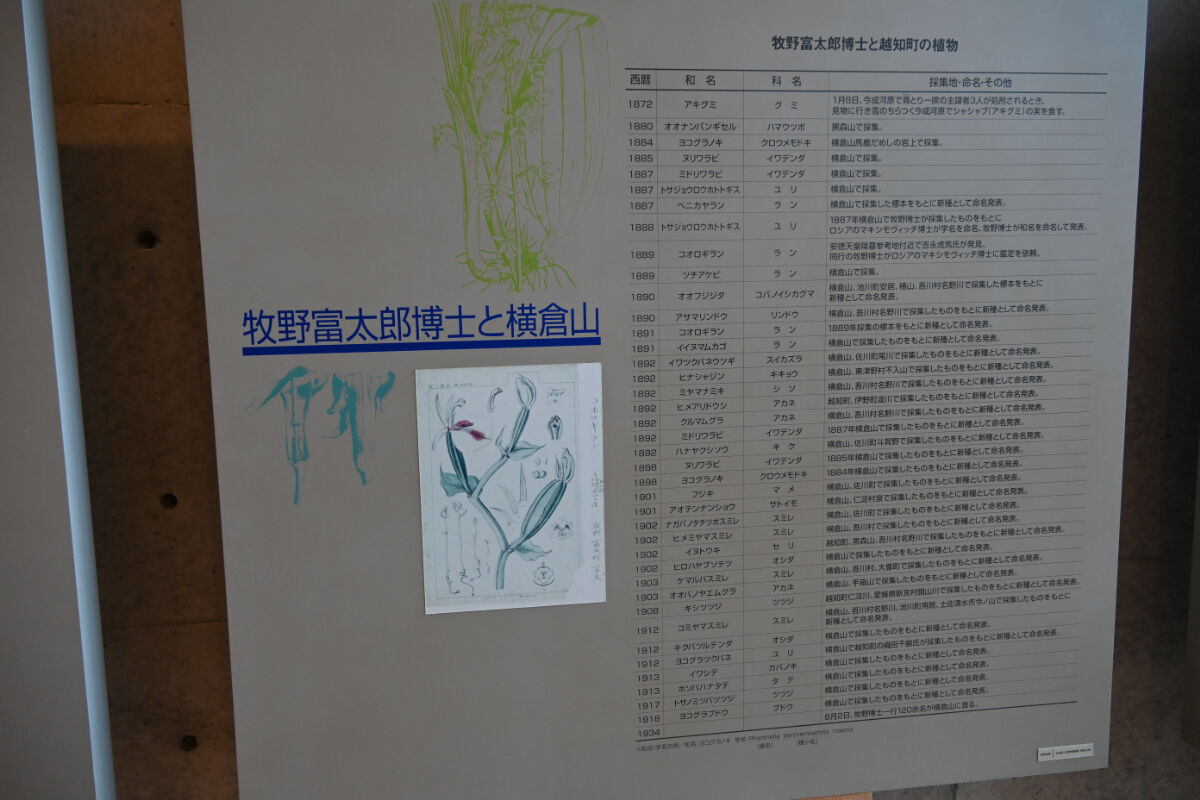 牧野富太郎博士と横倉山
牧野富太郎博士と越知町の植物
西暦 和名 科名 採集地・命名・その他
1872 アキグミ グミ 1月8日、今成河原で膏とり一揆の主謀者3人が処刑されるとき、
見物に行き雪のちらつく今成河原でシャシャブ(アキグミ)の実を食す。
1880 オオナンバンギセル ハマウツボ 黒森山で採集。
1884 ヨコグラノキ クロウメモドキ 横倉山馬鹿だめしの岩上で採集。
1885 ヌリワラビ イワデンダ 横倉山で採集。
1887 ミドリワラビ イワデンダ 横倉山で採集。
1887 トサジョウロウホトトギス ユリ 横倉山で採集。
1887 ベニカヤラン ラン 横倉山で採集した標本をもとに新種として命名発表。
1888 トサジョウロウホトトギス ユリ 1887年横倉山で牧野博士が採集したものをもとに
ロシアのマキシモヴィッチ博士が学名を命名、牧野博士が和名を命名して発表。
1889 コオロギラン ラン 安徳天皇陵墓参考地付近で吉永虎馬氏が発見。
同行の牧野博士がロシアのマキシモヴィッチ博士に鑑定を依頼。
1889 ツチアケビ ラン 横倉山で採集。
1890 オオフジシダ コバノイシカグマ 横倉山、池川町安居、椿山、吾川村名野川で採集した標本をもとに
新種として命名発表。
1890 アサマリンドウ リンドウ 横倉山、吾川村名野川で採集したものをもとに新種として命名発表。
1891 コオロギラン ラン 1889年採集の標本をもとに新種として命名発表。
1891 イイヌマムカゴ ラン 横倉山で採集したものをもとに新種として命名発表。
1892 イワツクバネウツギ スイカズラ 横倉山、佐川町尾川で採集したものをもとに新種として命名発表。
1892 ヒナシャジン キキョウ 横倉山、東津野村不入山で採集したものをもとに新種として命名発表。
1892 ミヤマナミキ シソ 横倉山、吾川村名野川で採集したものをもとに新種として命名発表。
1892 ヒメアリドウシ アカネ 越知町、伊野町波川で採集したものをもとに新種として命名発表。
1892 クルマムグラ アカネ 横倉山、吾川村名野川で採集したものをもとに新種として命名発表。
1892 ミドリワラビ イワデンダ 1887年横倉山で採集したものをもとに新種として命名発表。
1892 ハナヤクシソウ キク 横倉山、佐川町斗賀野で採集したものをもとに新種として命名発表。
1898 ヌリワラビ イワデンダ 1885年横倉山で採集したものをもとに新種として命名発表。
1898 ヨコグラノキ クロウメモドキ 1884年横倉山で採集したものをもとに新種として命名発表。
1901 フジキ マメ 横倉山、佐川町で採集したものをもとに新種として命名発表。
1901 アオテンナンショウ サトイモ 横倉山、仁淀村泉で採集したものをもとに新種として命名発表。
1902 ナガバノタチツボスミレ スミレ 横倉山、佐川町で採集したものをもとに新種として命名発表。
1902 ヒメミヤマスミレ スミレ 横倉山、吾川村で採集したものをもとに新種として命名発表。
1902 イヌトウキ セリ 越知町、黒森山、吾川村名野川で採集したものをもとに新種として命名発表。
1902 ヒロハヤブソテツ オシダ 横倉山で採集したものをもとに新種として命名発表。
1903 ケマルバスミレ スミレ 横倉山、吾川村、大豊町で採集したものをもとに新種として命名発表。
1903 オオバノヤエムグラ アカネ 横倉山、手箱山で採集したものをもとに新種として命名発表。
1908 キシツツジ ツツジ 越知町仁淀川、愛媛県新宮村銅山川で採集したものをもとに新種として命名発表。
1912 コミヤマスミレ スミレ 横倉山、吾川村名野川、池川町用居、土佐清水市今ノ山で採集したものをもとに
新種として命名発表。
1912 キクバツルテンダ オシダ 横倉山で採集したものをもとに新種として命名発表。
1912 ヨコグラツクバネ ユリ 横倉山で越知町の織田千嶽氏が採集したものをもとに新種として命名発表。
1913 イワシデ カバノキ 横倉山で採集したものをもとに新種として命名発表。
1913 ホソバハナタデ タデ 横倉山で採集したものをもとに新種として命名発表。
1917 トサノミツバツツジ ツツジ 横倉山で採集したものをもとに新種として命名発表。
1918 ヨコグラブドウ ブドウ 横倉山で採集したものをもとに新種として命名発表。
1934 8月2日、牧野博士一行120余名が横倉山に登る。